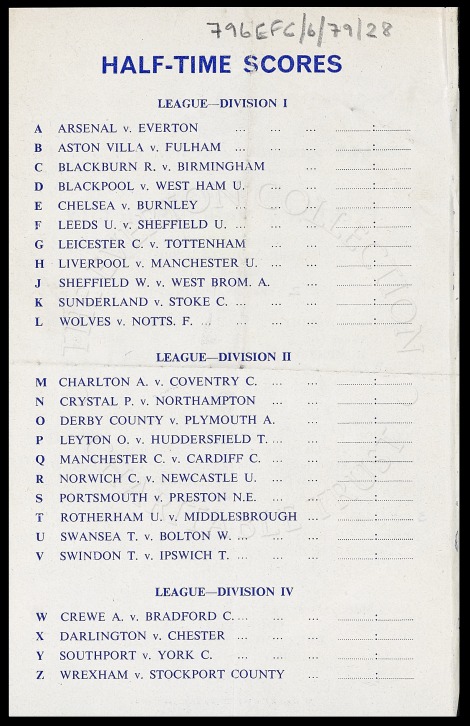 796EFC/6/79/28
HALF-TIME SCORES
LEAGUE—DIVISION I
A ARSENAL v. EVERTON ... ... ... ............:............
B ASTON VILLA v. FULHAM ... ... ... ............:............
C BLACKBURN R. v. BIRMINGHAM ... ............:............
D BLACKPOOL v. WEST HAM U. ... ... ............:............
E CHELSEA v. BURNLEY ... ... ... ............:............
F LEEDS U. v. SHEFFIELD U. ... ... ... ............:............
G LEICESTER C. v. TOTTENHAM ... ... ............:............
H LIVERPOOL v. MANCHESTER U. ... ... ............:............
J SHEFFIELD W. v. WEST BROM. A. ... ............:............
K SUNDERLAND v. STOKE C. ... ... ... ............:............
L WOLVES v. NOTTS. F. ... ... ... ............:............
LEAGUE—DIVISION II
M CHARLTON A. v. COVENTRY C. ... ... ............:............
N CRYSTAL P. v. NORTHAMPTON ... ... ............:............
O DERBY COUNTY v. PLYMOUTH A. ... ............:............
P LEYTON O. v. HUDDERSFIELD T. ... ... ............:............
Q MANCHESTER C. v. CARDIFF C. ... ... ............:............
R NORWICH C. v. NEWCASTLE U. ... ... ............:............
S PORTSMOUTH v. PRESTON N.E. ... ... ............:............
T ROTHERHAM U. v. MIDDLESBROUGH ... ............:............
U SWANSEA T. v. BOLTON W. ... ... ... ............:............
V SWINDON T. v. IPSWICH T. ... ... ... ............:............
LEAGUE—DIVISION IV
W CREWE A. v. BRADFORD C. ... ... ... ............:............
X DARLINGTON v. CHESTER ... ... ... ............:............
Y SOUTHPORT v. YORK C. ... ... ... ............:............
Z WREXHAM v. STOCKPORT COUNTY ... ............:............